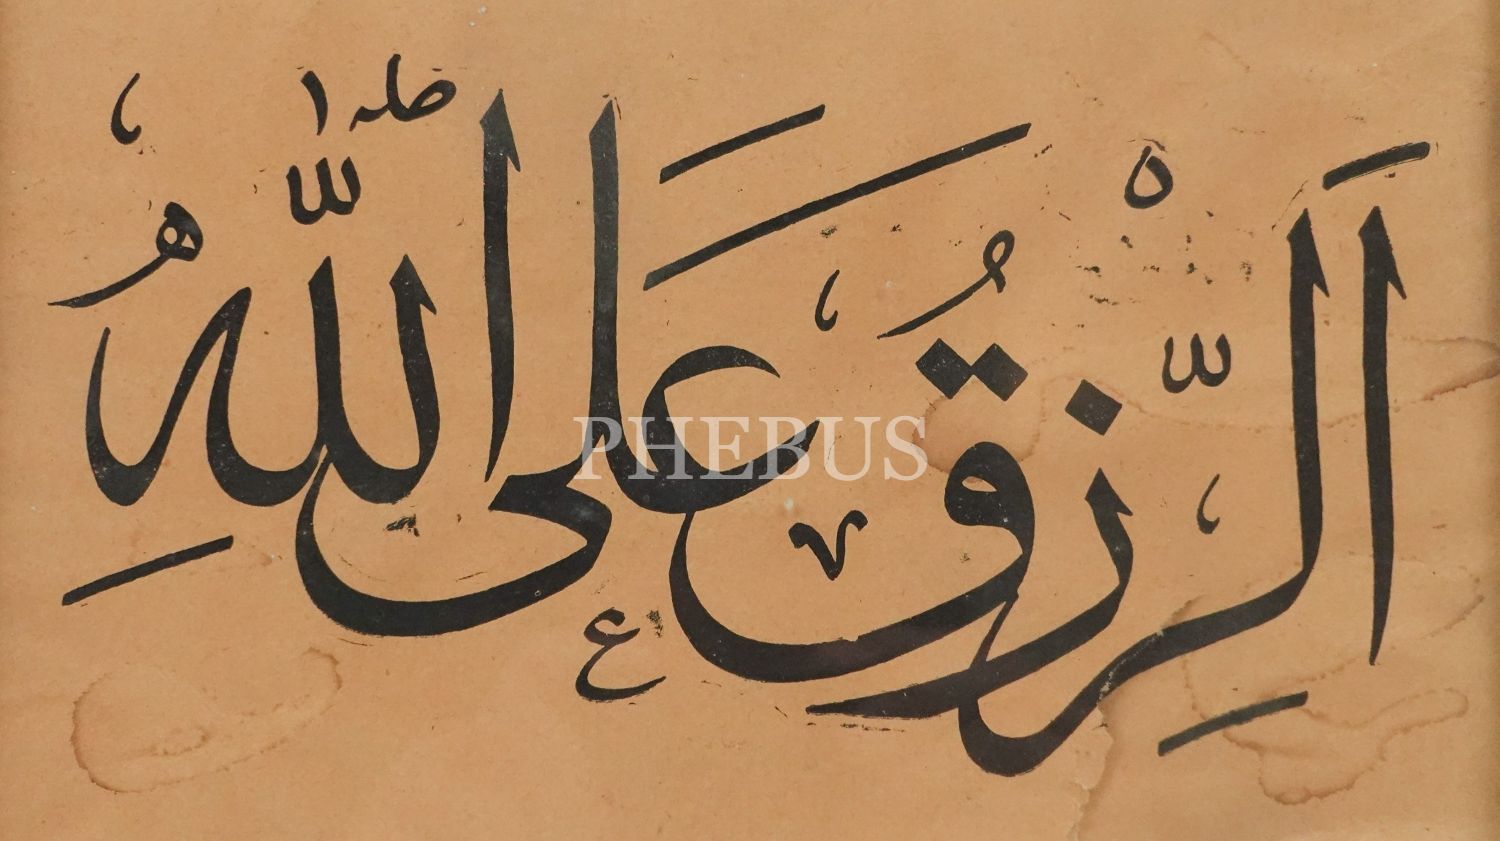 اَلرِّزْقُ عَلَى اللّٰهِ
PHEBUS